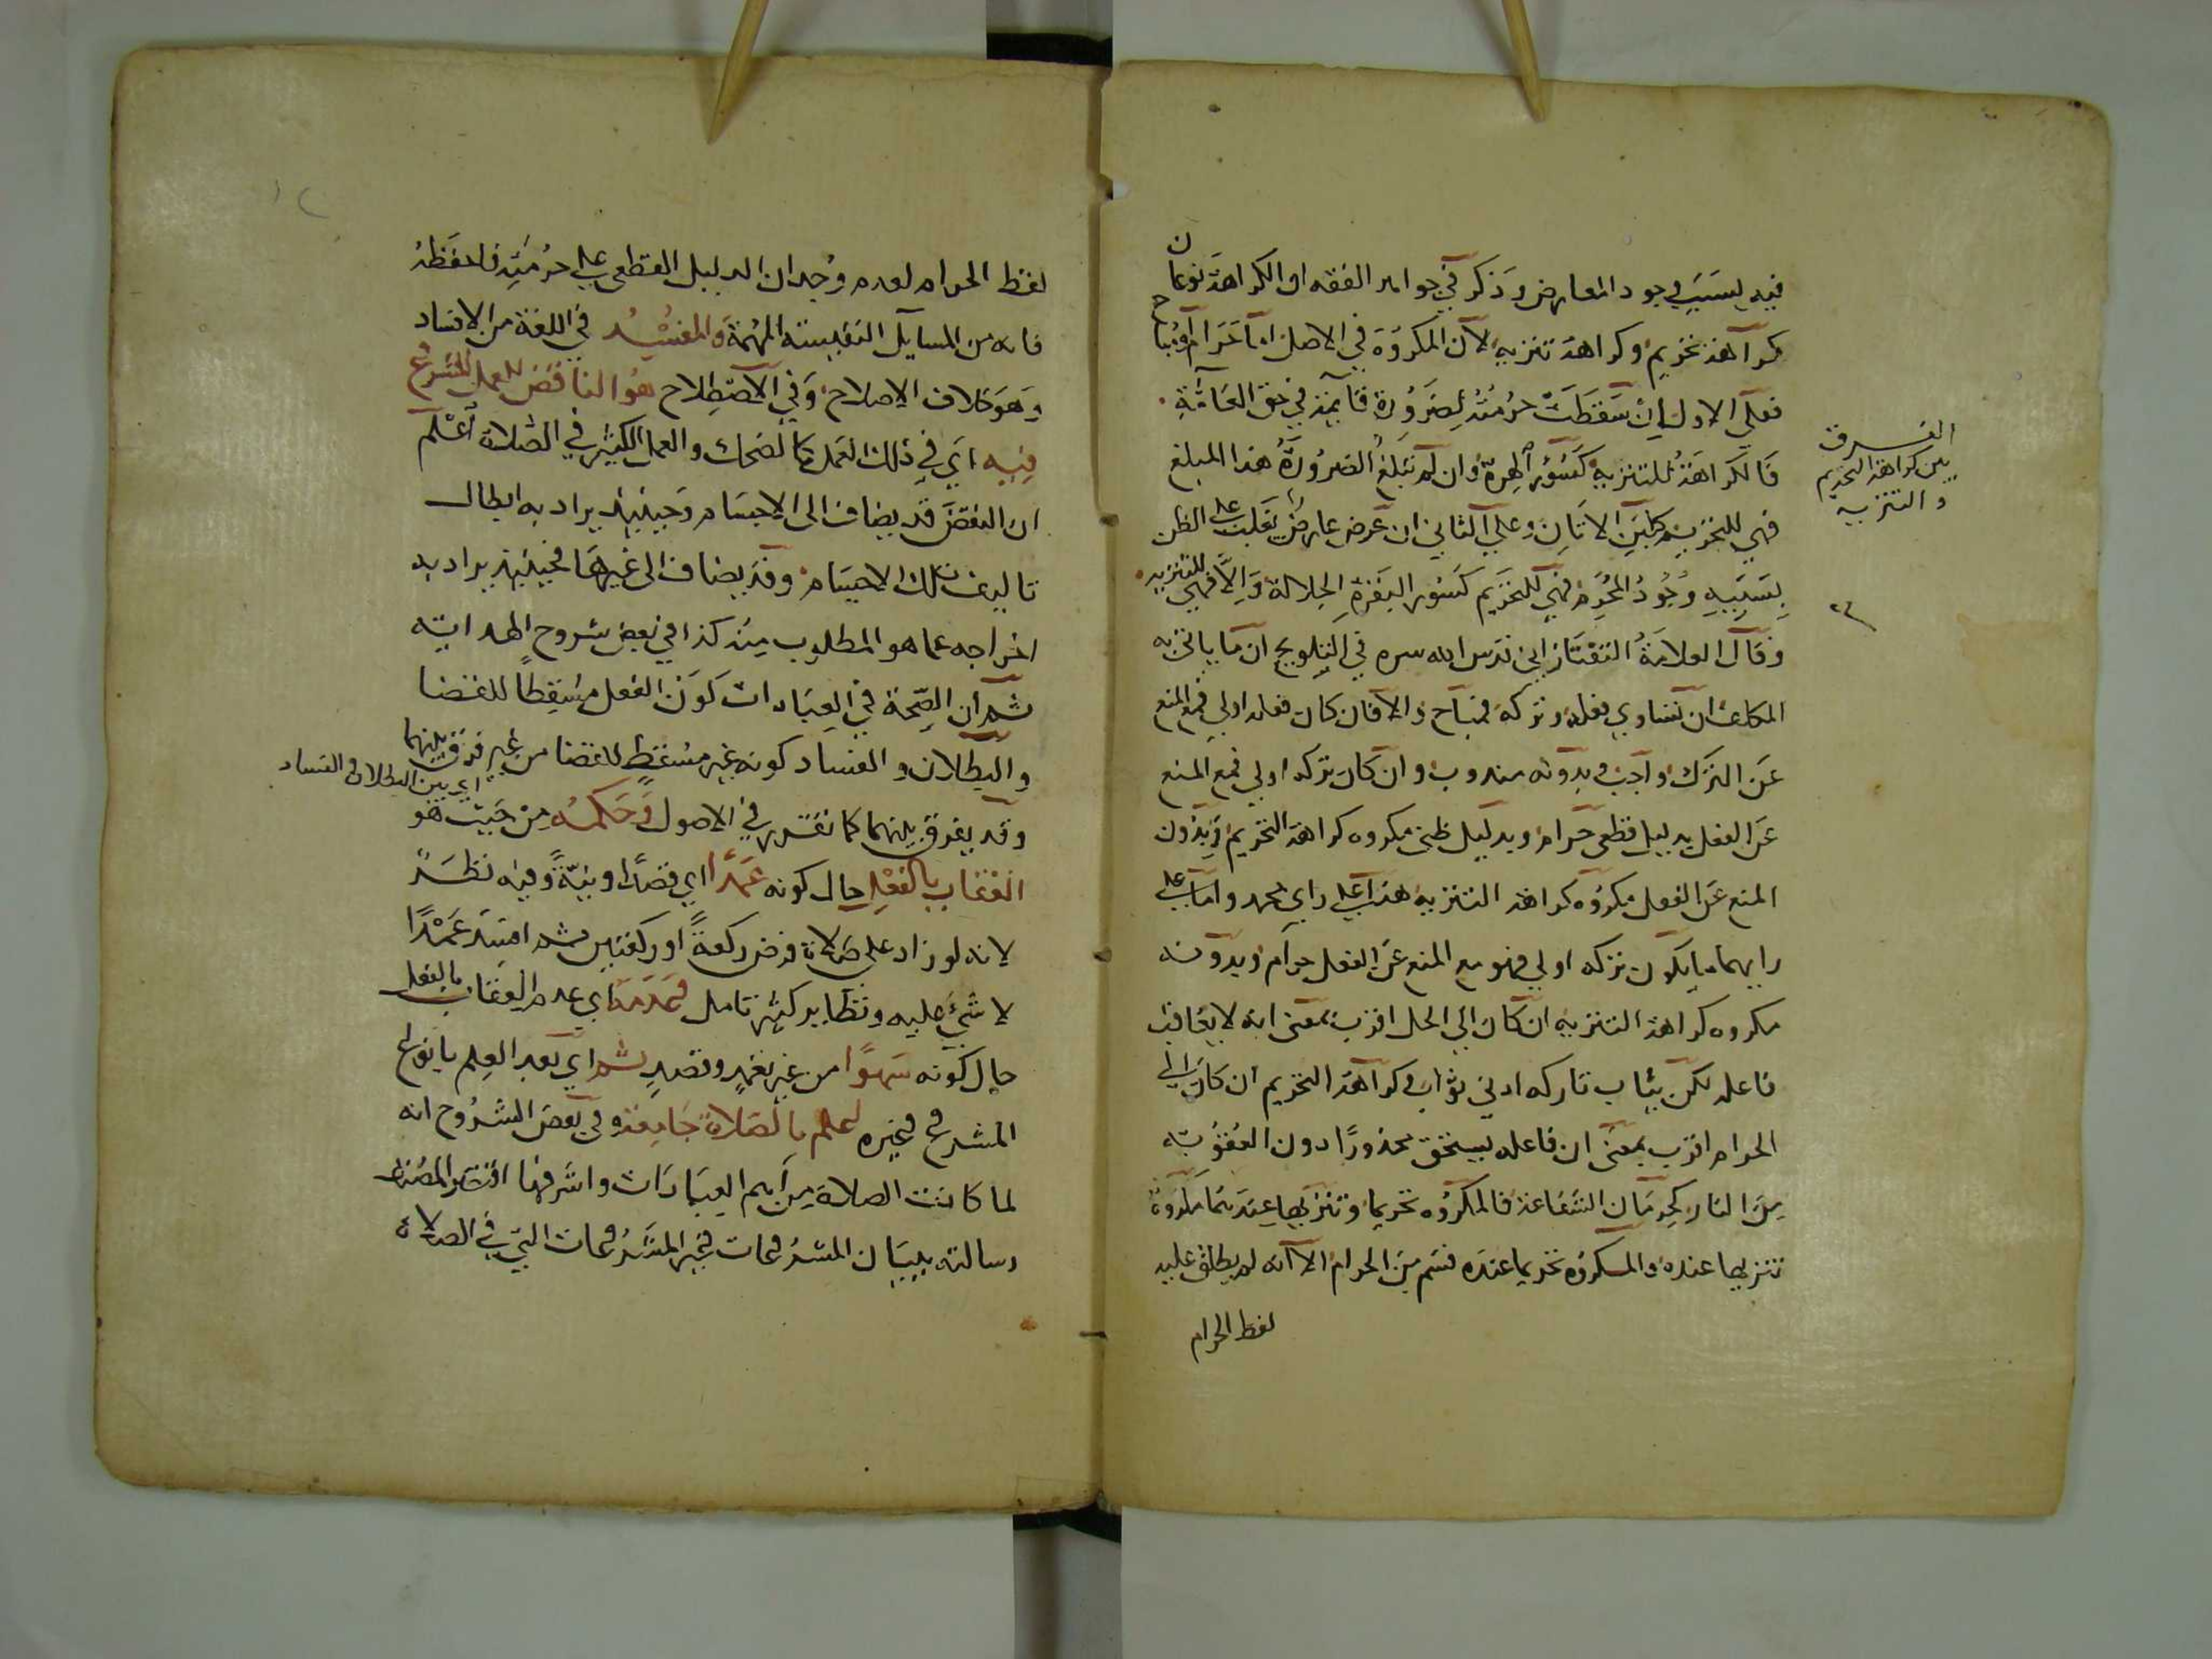 فيه بسبب وجود المعارض وذكر في جواهر الفقه ان الكراهة نوعان
كراهة تحريم وكراهة تنزيه لان المكروه في الاصل اما حرام او مباح
فعلى الاول ان سقطت حرمته لضرورة قائمة في حق العامة
فالكراهة للتنزيه كسؤر الهرة وان لم تبلغ الضرورة هذا المبلغ
فهي للتحريم كلبن الاتان وعلى الثاني ان عرض عارض يغلب على الظن
بسببه وجود المحرم فهي للتحريم كسؤر البقرة الجلالة والا فهي للتنزيه
وقال العلامة التفتازاني قدس الله سره في التلويح ان ما ياتي به
المكلف ان تساوي فعله وتركه فمباح والا فان كان فعله اولي فمع المنع
عن الترك واجب وبدونه مندوب وان كان تركه اولي فمع المنع
عن الفعل بدليل قطعي حرام وبدليل ظني مكروه كراهة التحريم وبدون
المنع عن الفعل مكروه كراهة التنزيه هذا على راي محمد واما على
رايهما ما يكون تركه اولي فهو مع المنع عن الفعل حرام وبدونه
مكروه كراهة التنزيه ان كان الي الحل اقرب بمعنى انه لا يعاقب
فاعله لكن يثاب تاركه ادني ثواب وكراهة التحريم ان كان الى
الحرام اقرب بمعنى ان فاعله يستحق محذورا دون العقوبة
من النار كحرمان الشفاعة فالمكروه تحريما وتنزيها عندهما مكروه
تنزيها عنده والمكروه تحريما عنده قسم من الحرام الا انه لم يطلق عليه
لفظ الحرام
الفرق
بين كراهة التحريم
والتنزيه
لفظ الحرام لعدم وجدان الدليل القطعي على حرمته فاحفظه
فانه من المسايل النفيسة المهمة والمفسد في اللغة من الافساد
وهو خلاف الاصلاح وفي الاصطلاح هو الناقض للعمل المشروع
فيه اي في ذلك العمل كالضحك والعمل الكثير في الصلاة اعلم
ان النقض قد يضاف الى الاجسام وحينئذ يراد به ابطال
تاليف تلك الاجسام وقد يضاف الى غيرها فحينئذ يراد به
اخراجه عما هو المطلوب منه كذا في بعض شروح الهداية
ثم ان الصحة في العبادات كون الفعل مسقطا للقضا
والبطلان والفساد كونه غير مسقط للقضا من غير فرق بينهما
اي بين البطلان والفساد
وقد يفرق بينهما كما تقرر في الاصول وحكمه من حيث هو
العقاب بالفعل حال كونه عمدا اي قصدا ونية وفيه نظر
لانه لو زاد على صلاة فرض ركعة او ركعتين ثم افسد عمدا
لا شئ عليه ونظايره كثير تامل وعدمه اي عدم العقاب بالفعل
حال كونه سهوا من غير تعمد وقصد ثم اي بعد العلم بانواع
المشروع وغيره اعلم بالصلاة جامعة وفي بعض الشروح انه
لما كانت الصلاة من اهم العبادات واشرفها اقتصر المصنف
رسالته ببيان المشروعات وغير المشروعات التي في الصلاة